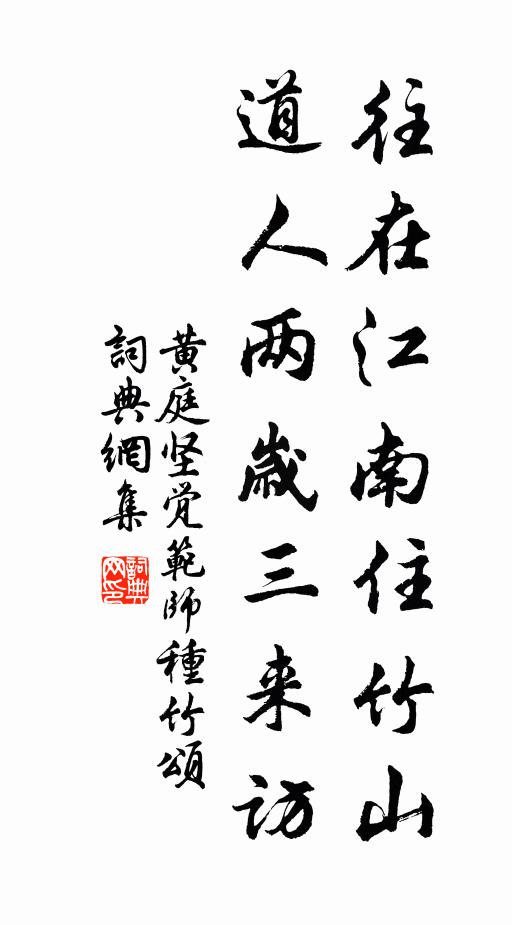 往在江南住竹山
道人两歲三来访
黄庭坚觉範師種竹頌
詞典網集
詞典网印